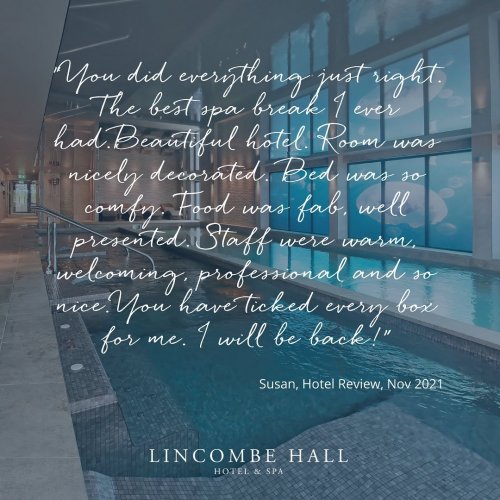 "You did everything just right.
The best spa break I ever
had.Beautiful hotel. Room was
nicely decorated. Bed was so
comfy. Food was fab, well
presented. Staff were warm,
welcoming, professional and so
nice.You have ticked every box
for me. I will be back!"
Susan, Hotel Review, Nov 2021
LINCOMBE HALL
HOTEL & SPA